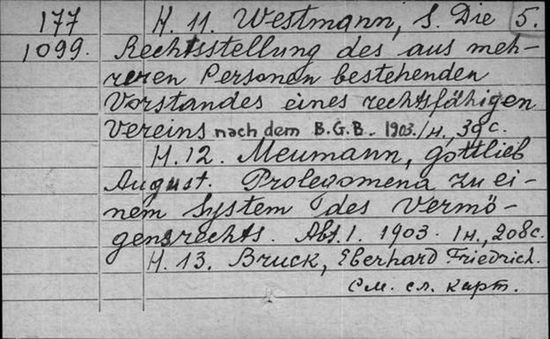 177 H. 11. Westmann, S. Die 5.
1099. Rechtsstellung des aus meh-
reren Personen bestehenden
Vorstandes eines rechtsfähigen
Vereins nach dem B.G.B. 1903. IH., 39c.
H. 12. Meumann, Gottlieb
August. Prolegomena zu ei-
nem System des Vermö-
gensrechts. Abt. 1. 1903. IH., 208c.
H. 13. Bruck, Eberhard Friedrich.
См. сл. карт.